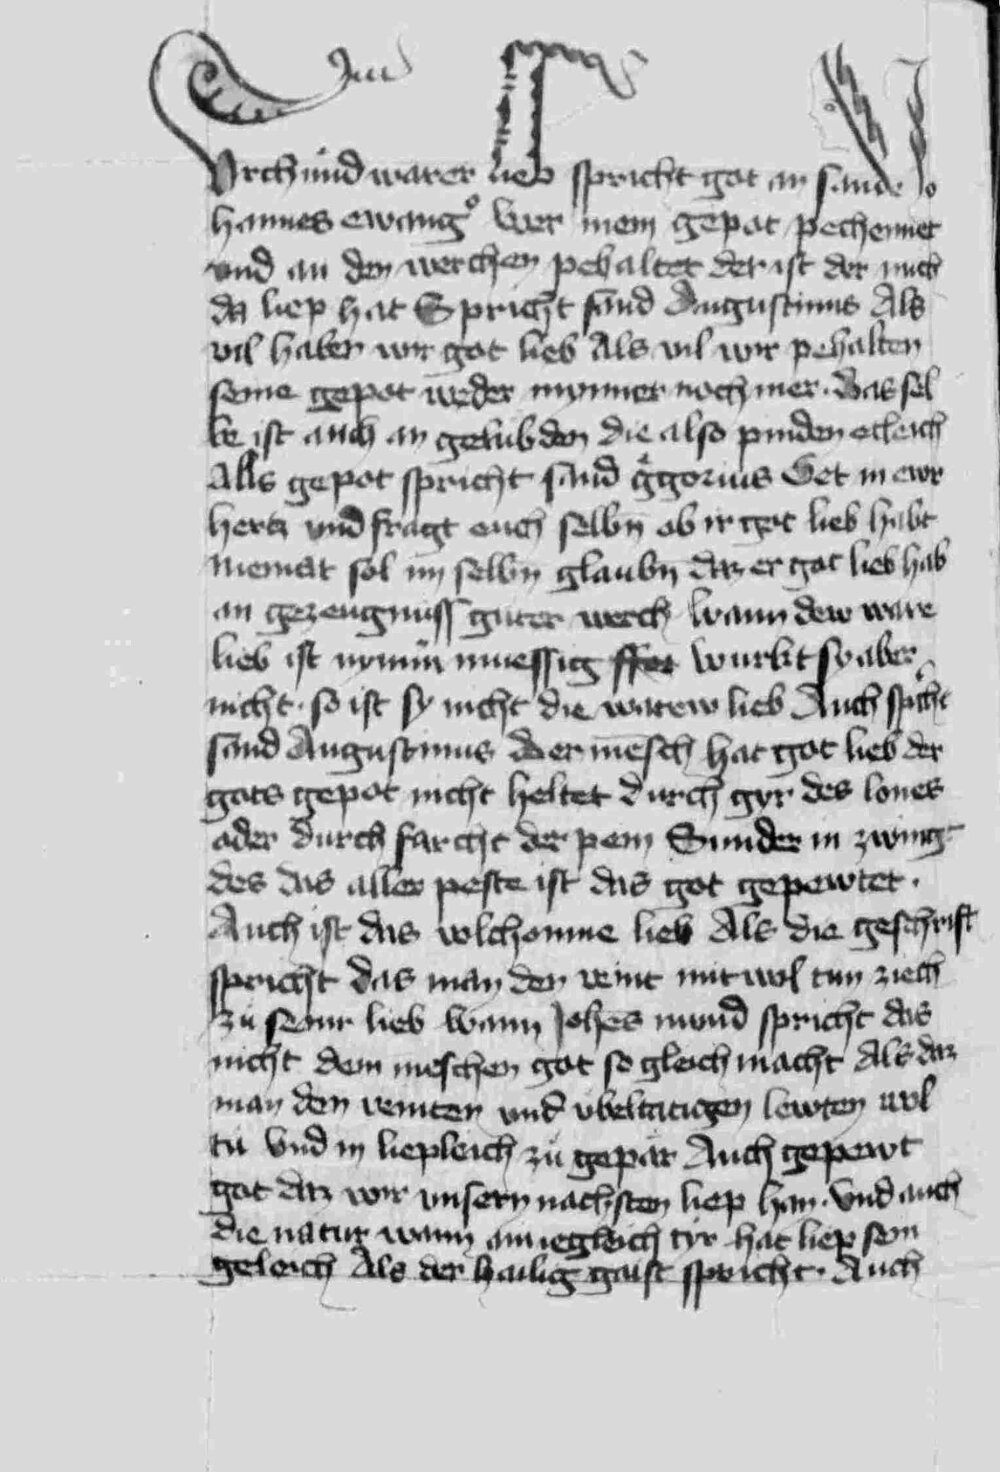 Vrchund warer lieb spricht got an sand Jo
hannes ewang° Wer mein gepot pechennet
vnd an den werchen pehaltet der ist der mich
da liep hat Spricht sand Augustinus Als
vil haben wir got lieb Als vil wir pehalten
seine gepot weder mynner noch mer · Das sel
be ist auch an gelubden die also pinden etleich
Alls gepot spricht sand ggorius Get in ewr
hertz vnd fragt euch selbn ob ir got lieb habt
Niemāt sol im selbn glaubn daz er got lieb hab
an gezeugnuss guter werch Wann dew ware
lieb ist nymm̄ muessig wurkt sy aber
nicht · so ist sy nicht die warew lieb Auch spicht
sand Augustinus Der mēsch hat got lieb der
gots gepot nicht heltet durch gyr des lones
oder durch farcht der pein Sunder in zwingt
des das aller peste ist das got gepewtet ·
Auch ist das volchomne lieb Als die geschrift
spricht das man den veint mit wol tun ziech
zu seinr lieb Wann Johēs mund spricht das
nicht dem meschen got so gleich macht Als daz
man den veinten vnd vbeltatigen lewten wol
tu Vnd in liepleich zu gepar Auch gepewt
got daz wir vnsern nachsten liep han · Vnd auch
die natur wann ain iegleich tyr hat liep sein
geleich Als der hailig gaist spricht · Auch